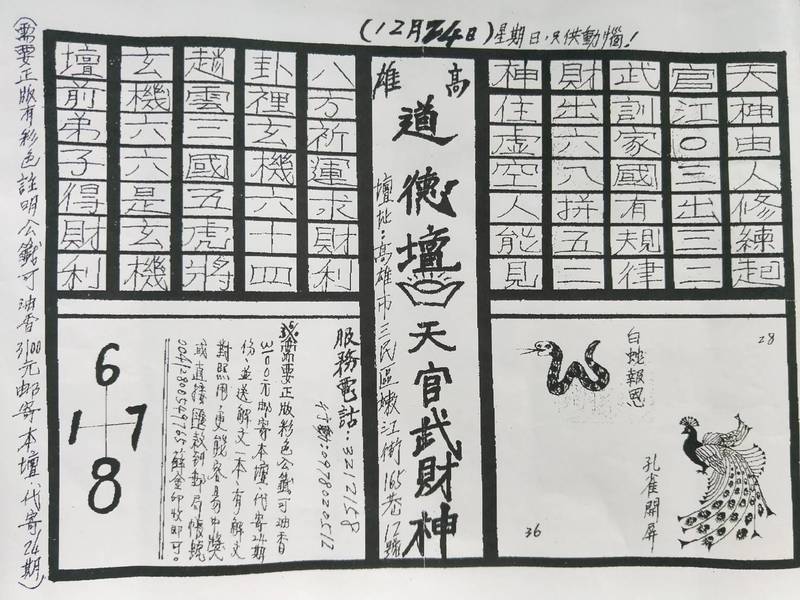 (12月24日)星期日,只供動惱!
天神由人修練起
官江〇三出三二
武訓家國有規律
財出六八拼五二
神住虛空人能見
高雄
道德壇
天官武財神
壇址:高雄市三民區嫩江街165巷12號
八方祈運求財利
卦裡玄機六十四
趙雲三國五虎將
玄機六六是玄機
壇前弟子得財利
28
白蛇報恩
孔雀開屏
36
服務電話:3212158
行動:0978020512
需要正版彩色公籤可油香
3100元郵寄本壇代寄24期
份.並送解文一本.有了解文
對照用.更能容易中獎
或直接匯款到郵局帳號
收即可。
6
1 7
8
(需要正版有彩色註明公籤可油香3100元郵寄本壇代寄24期)